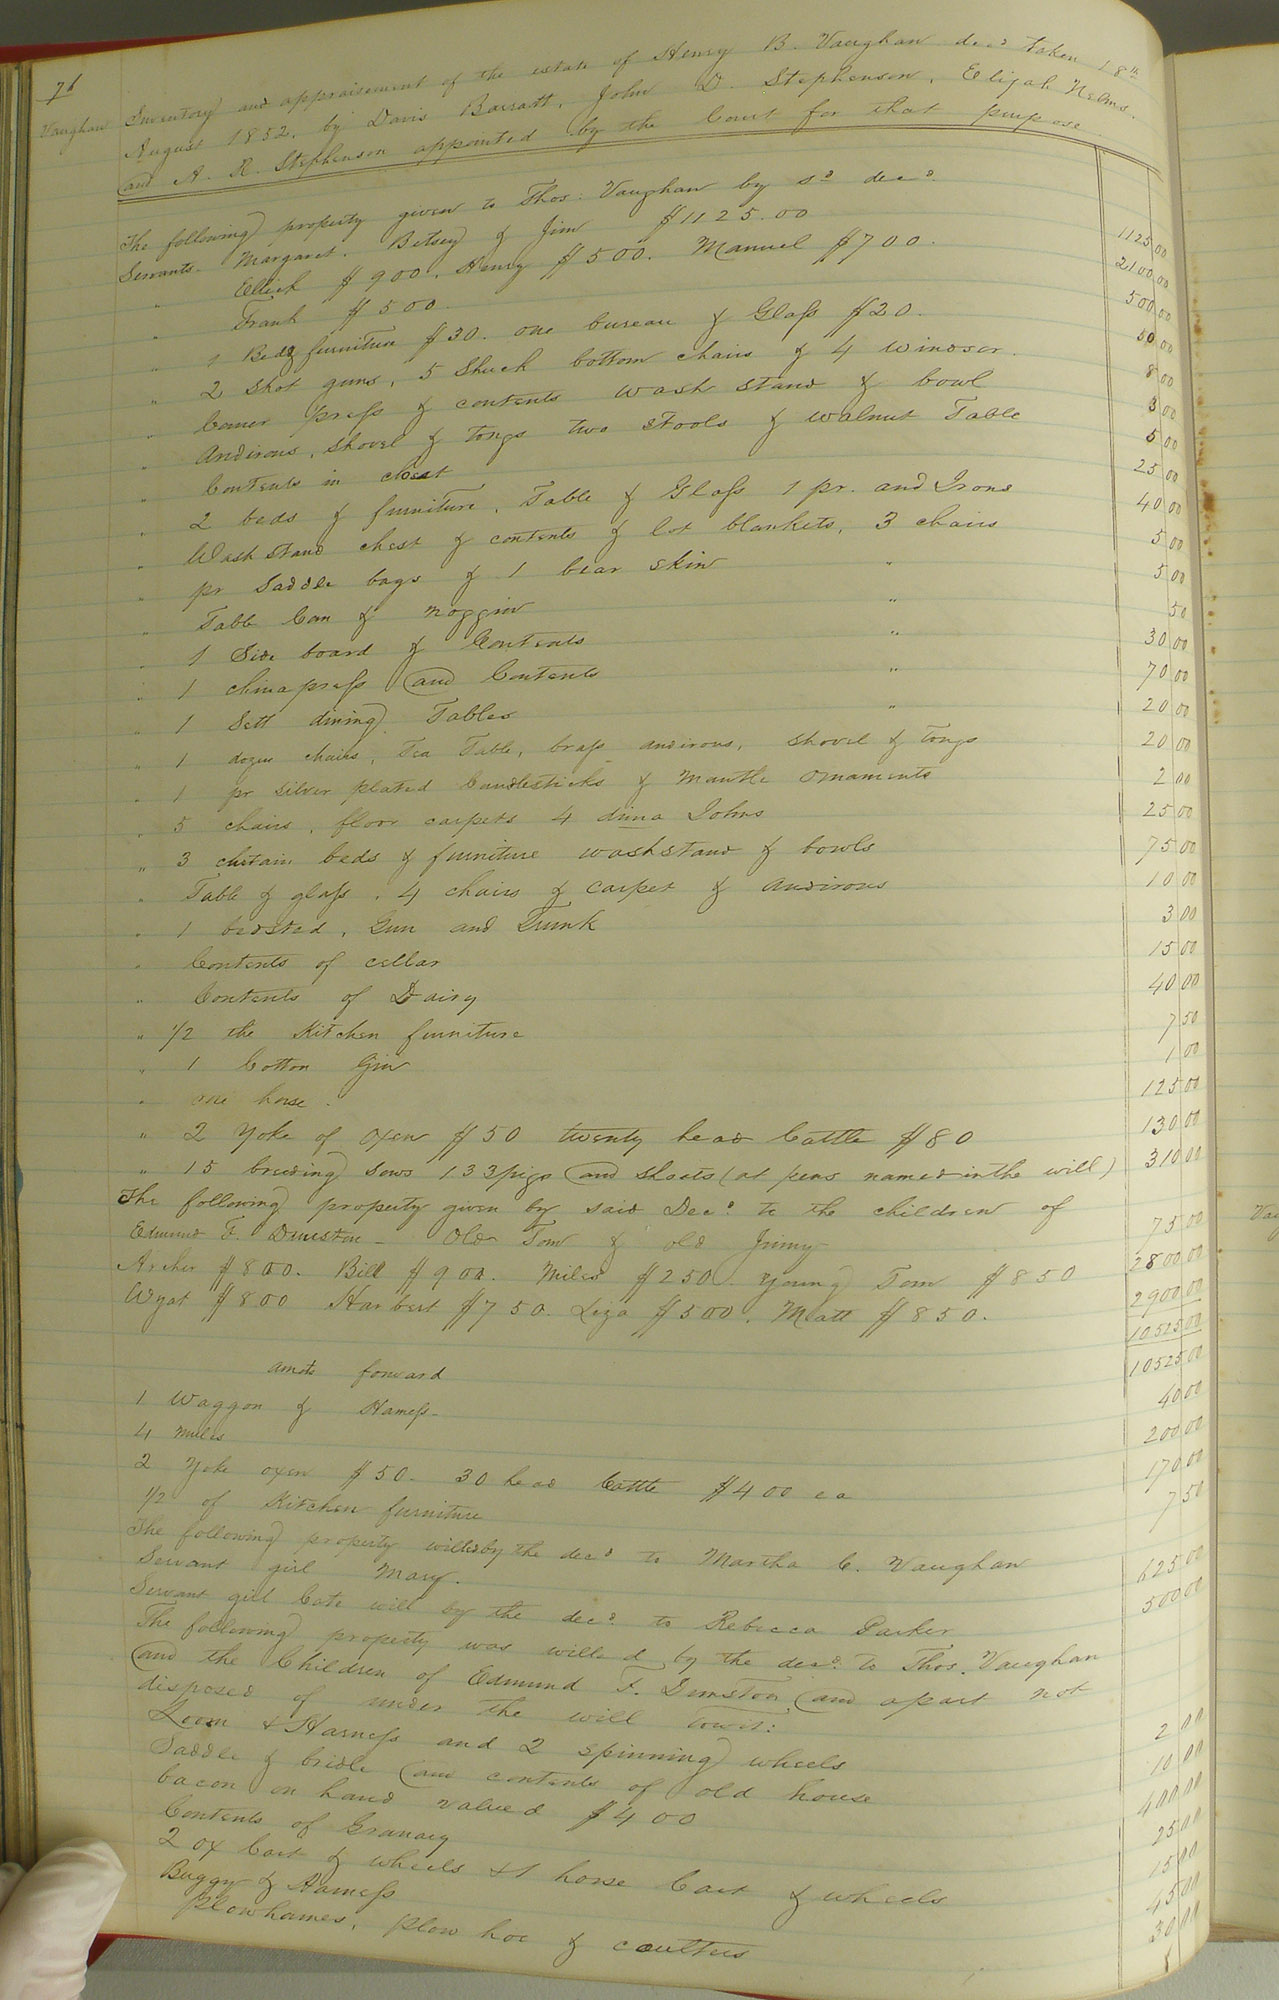 76
Vaughan Inventory and appraisement of the estate of Henry B. Vaughan decd taken 18th
August 1852, by Davis Barratt, John D. Stephenson, Elijah Nelms.
and A. R. Stephenson appointed by the Court for that purpose
The following property given to Thos. Vaughan by sd decd.
Servants. Margaret. Betsey & Jim $1125.00 1125 00
" Elleck $900. Henry $500. Manuel $700. 2100 00
" Frank $500. 500 00
" 1 Bed & furniture $30. one bureau & Glass $20. 50 00
" 2 shot guns, 5 Shuck bottom chairs & 4 windsor. 8 00
" Corner press & contents wash stand & bowl 3 00
" Andirons, shovel & tongs two stools & walnut Table 5 00
" Contents in chest 25 00
" 2 beds & furniture, Table & Glass 1 pr. and Irons 40 00
" Wash stand chest & contents & lot blankets, 3 chairs 5 00
" pr Saddle bags & 1 bear skin " 5 00
" Table Can & noggin " 50
" 1 Side board & Contents " 30 00
" 1 china press and Contents " 70 00
" 1 Sett dining Tables " 20 00
" 1 dozen chairs, Tea Table, brass andirons, shovel & tongs 20 00
" 1 pr silver plated Candlesticks & Mantle ornaments 2 00
" 5 chairs, floor carpets 4 dima Johns 25 00
" 3 chitain beds & furniture washstand & bowls 75 00
" Table & glass, 4 chairs & carpet & andirons 10 00
" 1 bedsted, Gun and Trunk 3 00
" Contents of cellar 15 00
" Contents of Dairy 40 00
" 1/2 the Kitchen furniture 7 50
" 1 Cotton Gin 1 00
" one horse. 125 00
" 2 Yoke of oxen $50 twenty head Cattle $80 130 00
" 15 breeding sows 133 pigs and shoats (at pens named in the will) 310 00
The following property given by said Decd. to the children of
Edmund F. Dunston - Old Tom & old Jinny 75 00
Archer $800. Bill $900. Miles $250. Young Tom $850 2800 00
Wyat $800 Harbert $750. Liza $500. Matt $850. 2900 00
10525 00
amts forward 10525 00
1 Waggon & Harness - 40 00
4 mules 200 00
2 Yoke oxen $50 - 30 head Cattle $400 ea 170 00
1/2 of Kitchen furniture 7 50
The following property willed by the decd to Martha C. Vaughan
Servant girl Mary. 625 00
Servant girl Cate will by the decd. to Rebecca Parker 500 00
The following property was willed by the decd. to Thos. Vaughan
and the Children of Edmund F. Dunston and apart not
disposed of under the will Towit:
Loom & Harness and 2 spinning wheels 2 00
Saddle & bridle and contents of old house 10 00
bacon on hand valued $400 400 00
Contents of Granary 25 00
2 ox Cart & wheels & 1 horse Cart & wheels 15 00
Buggy & Harness 45 00
Plowhames, plow hoe & coulters 30 00